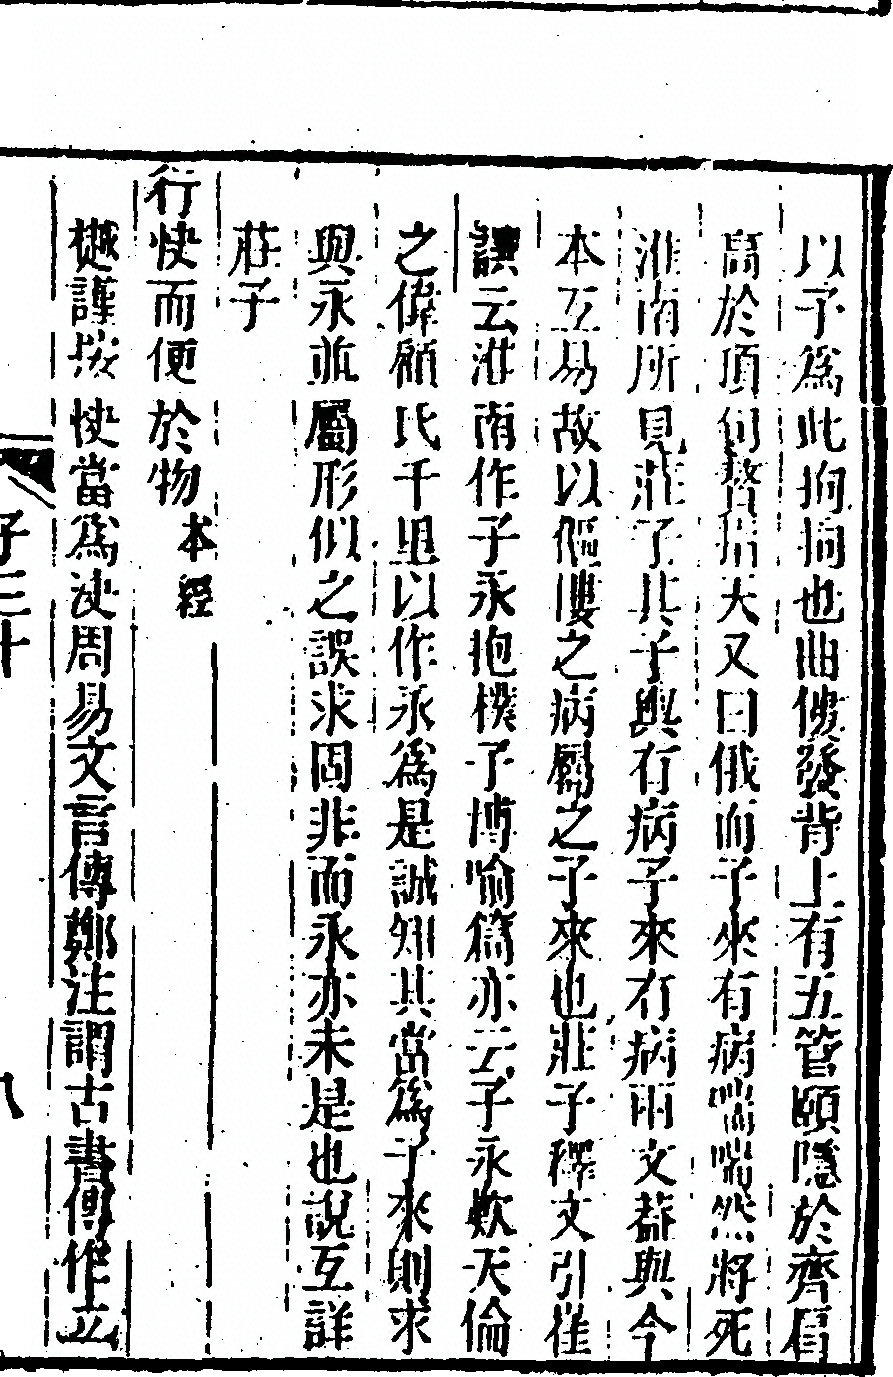 以予爲此拘拘也曲僂發背上有五管頤隱於齊肩
高於頂句贅指天又曰俄而子來有病喘喘然將死
淮南所見莊子其子輿有病子來有病兩文葢與今
本互易故以傴僂之病屬之子來也莊子釋文引崔
譔云淮南作子永抱樸子博喻篇亦云子永歎天倫
之偉顧氏千里以作永爲是誠知其當爲子來則求
與永並屬形似之誤求固非而永亦未是也說互詳
莊子
行快而便於物本經
樾謹按快當爲決周易文言傳鄭注謂古書傳作立
子三十
八